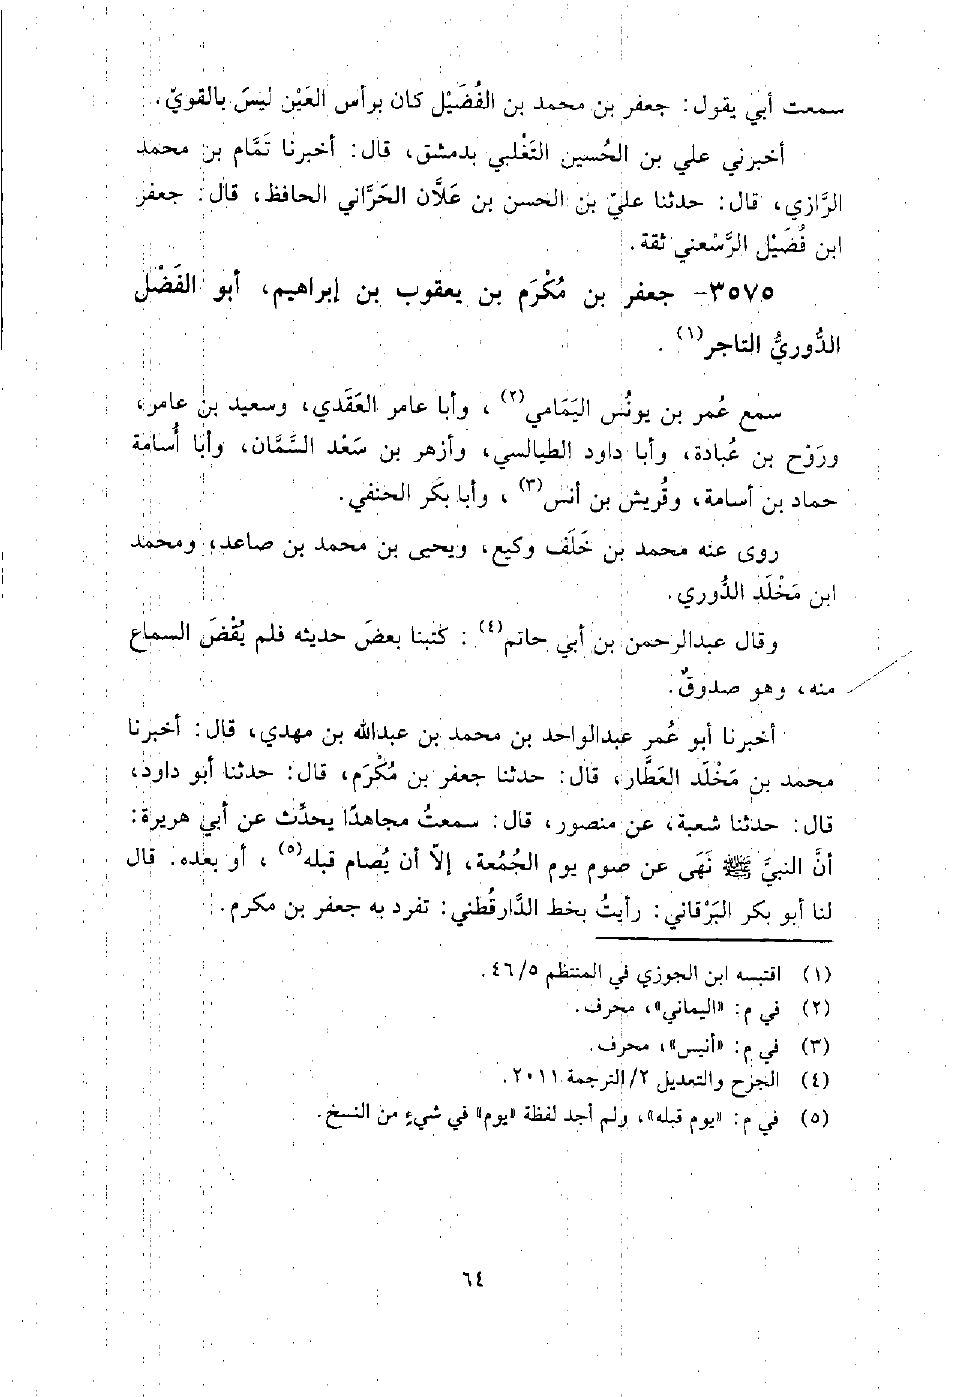 سمعت أبي يقول: جعفر بن محمد بن الفُضَيْل كان برأس العَيْن ليسَ بالقويّ.
أخبرني علي بن الحُسين التَغْلبي بدمشق، قال: أخبرنا تَمَّام بن محمد
الرَّازي، قال: حدثنا عليّ بن الحسن بن عَلَّان الحَرَّاني الحافظ، قال: جعفر
ابن فُضَيْل الرَّسْعني ثقة.
٣٥٧٥- جعفر بن مُكْرَم بن يعقوب بن إبراهيم، أبو الفَضْل
الدُّوريُّ التاجر(١).
سمع عُمر بن يونُس اليَمَامي(٢)، وأبا عامر العَقَدي، وسعيد بن عامر،
ورَوْح بن عُبادة، وأبا داود الطيالسي، وأزهر بن سَعْد السَّمَّان، وأبا أُسامة
حماد بن أسامة، وقُريش بن أنس(٣)، وأبا بَكر الحنفي.
روى عنه محمد بن خَلَف وكيع، ويحيى بن محمد بن صاعد، ومحمد
ابن مَخْلَد الدُّوري.
وقال عبدالرحمن بن أبي حاتم(٤): كتبنا بعضَ حديثه فلم يُقْضَ السماع
منه، وهو صدوقٌ.
أخبرنا أبو عُمر عبدالواحد بن محمد بن عبدالله بن مهدي، قال: أخبرنا
محمد بن مَخْلَد العَطَّار، قال: حدثنا جعفر بن مُكْرَم، قال: حدثنا أبو داود،
قال: حدثنا شعبة، عن منصور، قال: سمعتُ مجاهدًا يحدِّث عن أبي هريرة:
أنَّ النبيَّ ﷺ نَهَى عن صوم يوم الجُمُعة، إلاّ أن يُصام قبله(٥)، أو بعده. قال
لنا أبو بكر البَرْقاني: رأيتُ بخط الدَّارقُطني: تفرد به جعفر بن مكرم.
(١) اقتبسه ابن الجوزي في المنتظم ٤٦/٥.
(٢) في م: «اليماني»، محرف.
(٣) في م: «أنيس»، محرف.
(٤) الجرح والتعديل ٢/ الترجمة ٢٠١١.
(٥) في م: «يوم قبله»، ولم أجد لفظة «يوم» في شيءٍ من النسخ.
٦٤